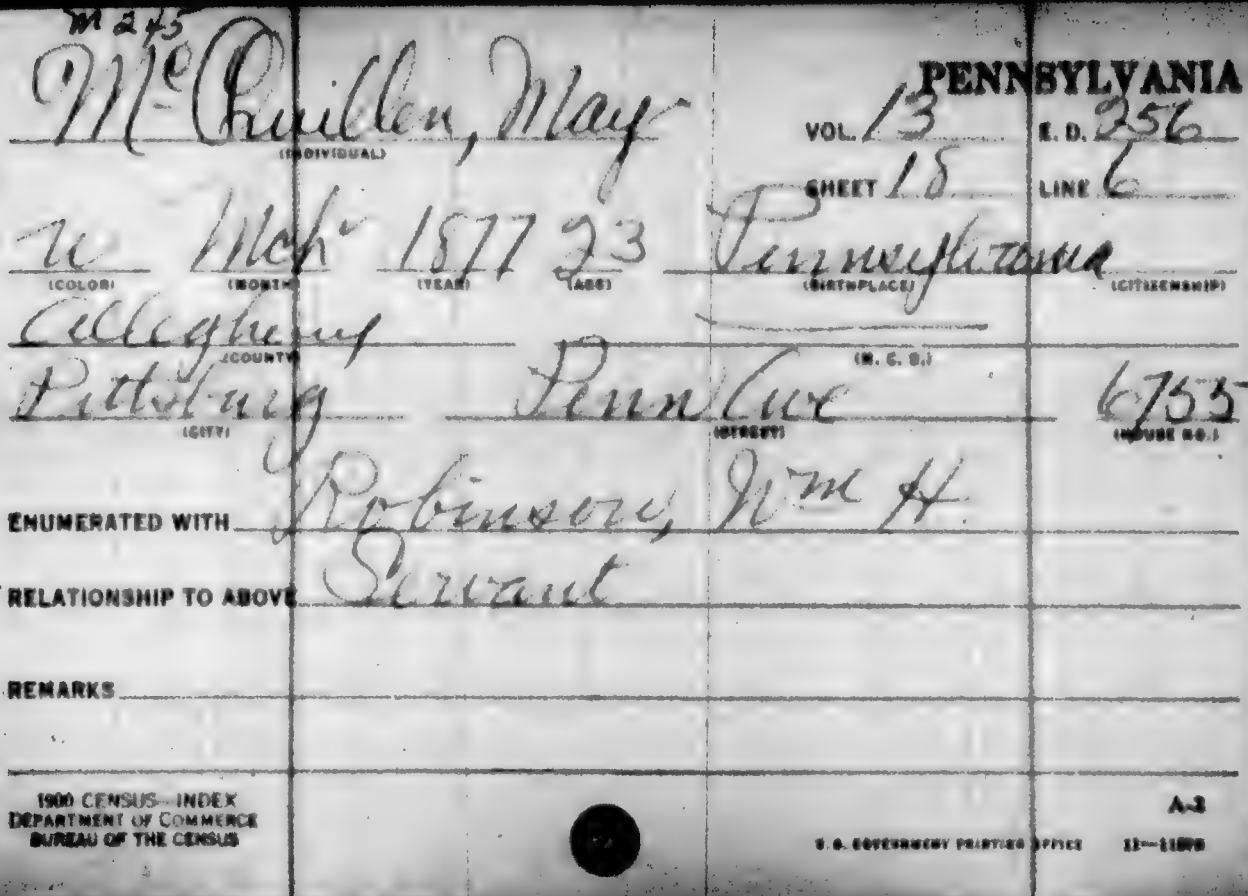 M 245
McChuillen, May
(INDIVIDUAL)
PENNSYLVANIA
VOL. 13 E. D. 256
SHEET 18 LINE 6
W Mch 1877 23 Pennsylvania
(COLOR) (MONTH) (YEAR) (AGE) (BIRTHPLACE) (CITIZENSHIP)
Allegheny
(COUNTY) (M. C. D.)
Pittsburg Penn Ave 6755
(CITY) (STREET) (HOUSE NO.)
ENUMERATED WITH Robinson, Wm H.
RELATIONSHIP TO ABOVE Servant
REMARKS
1900 CENSUS—INDEX
DEPARTMENT OF COMMERCE
BUREAU OF THE CENSUS
A-2
U.S. GOVERNMENT PRINTING OFFICE